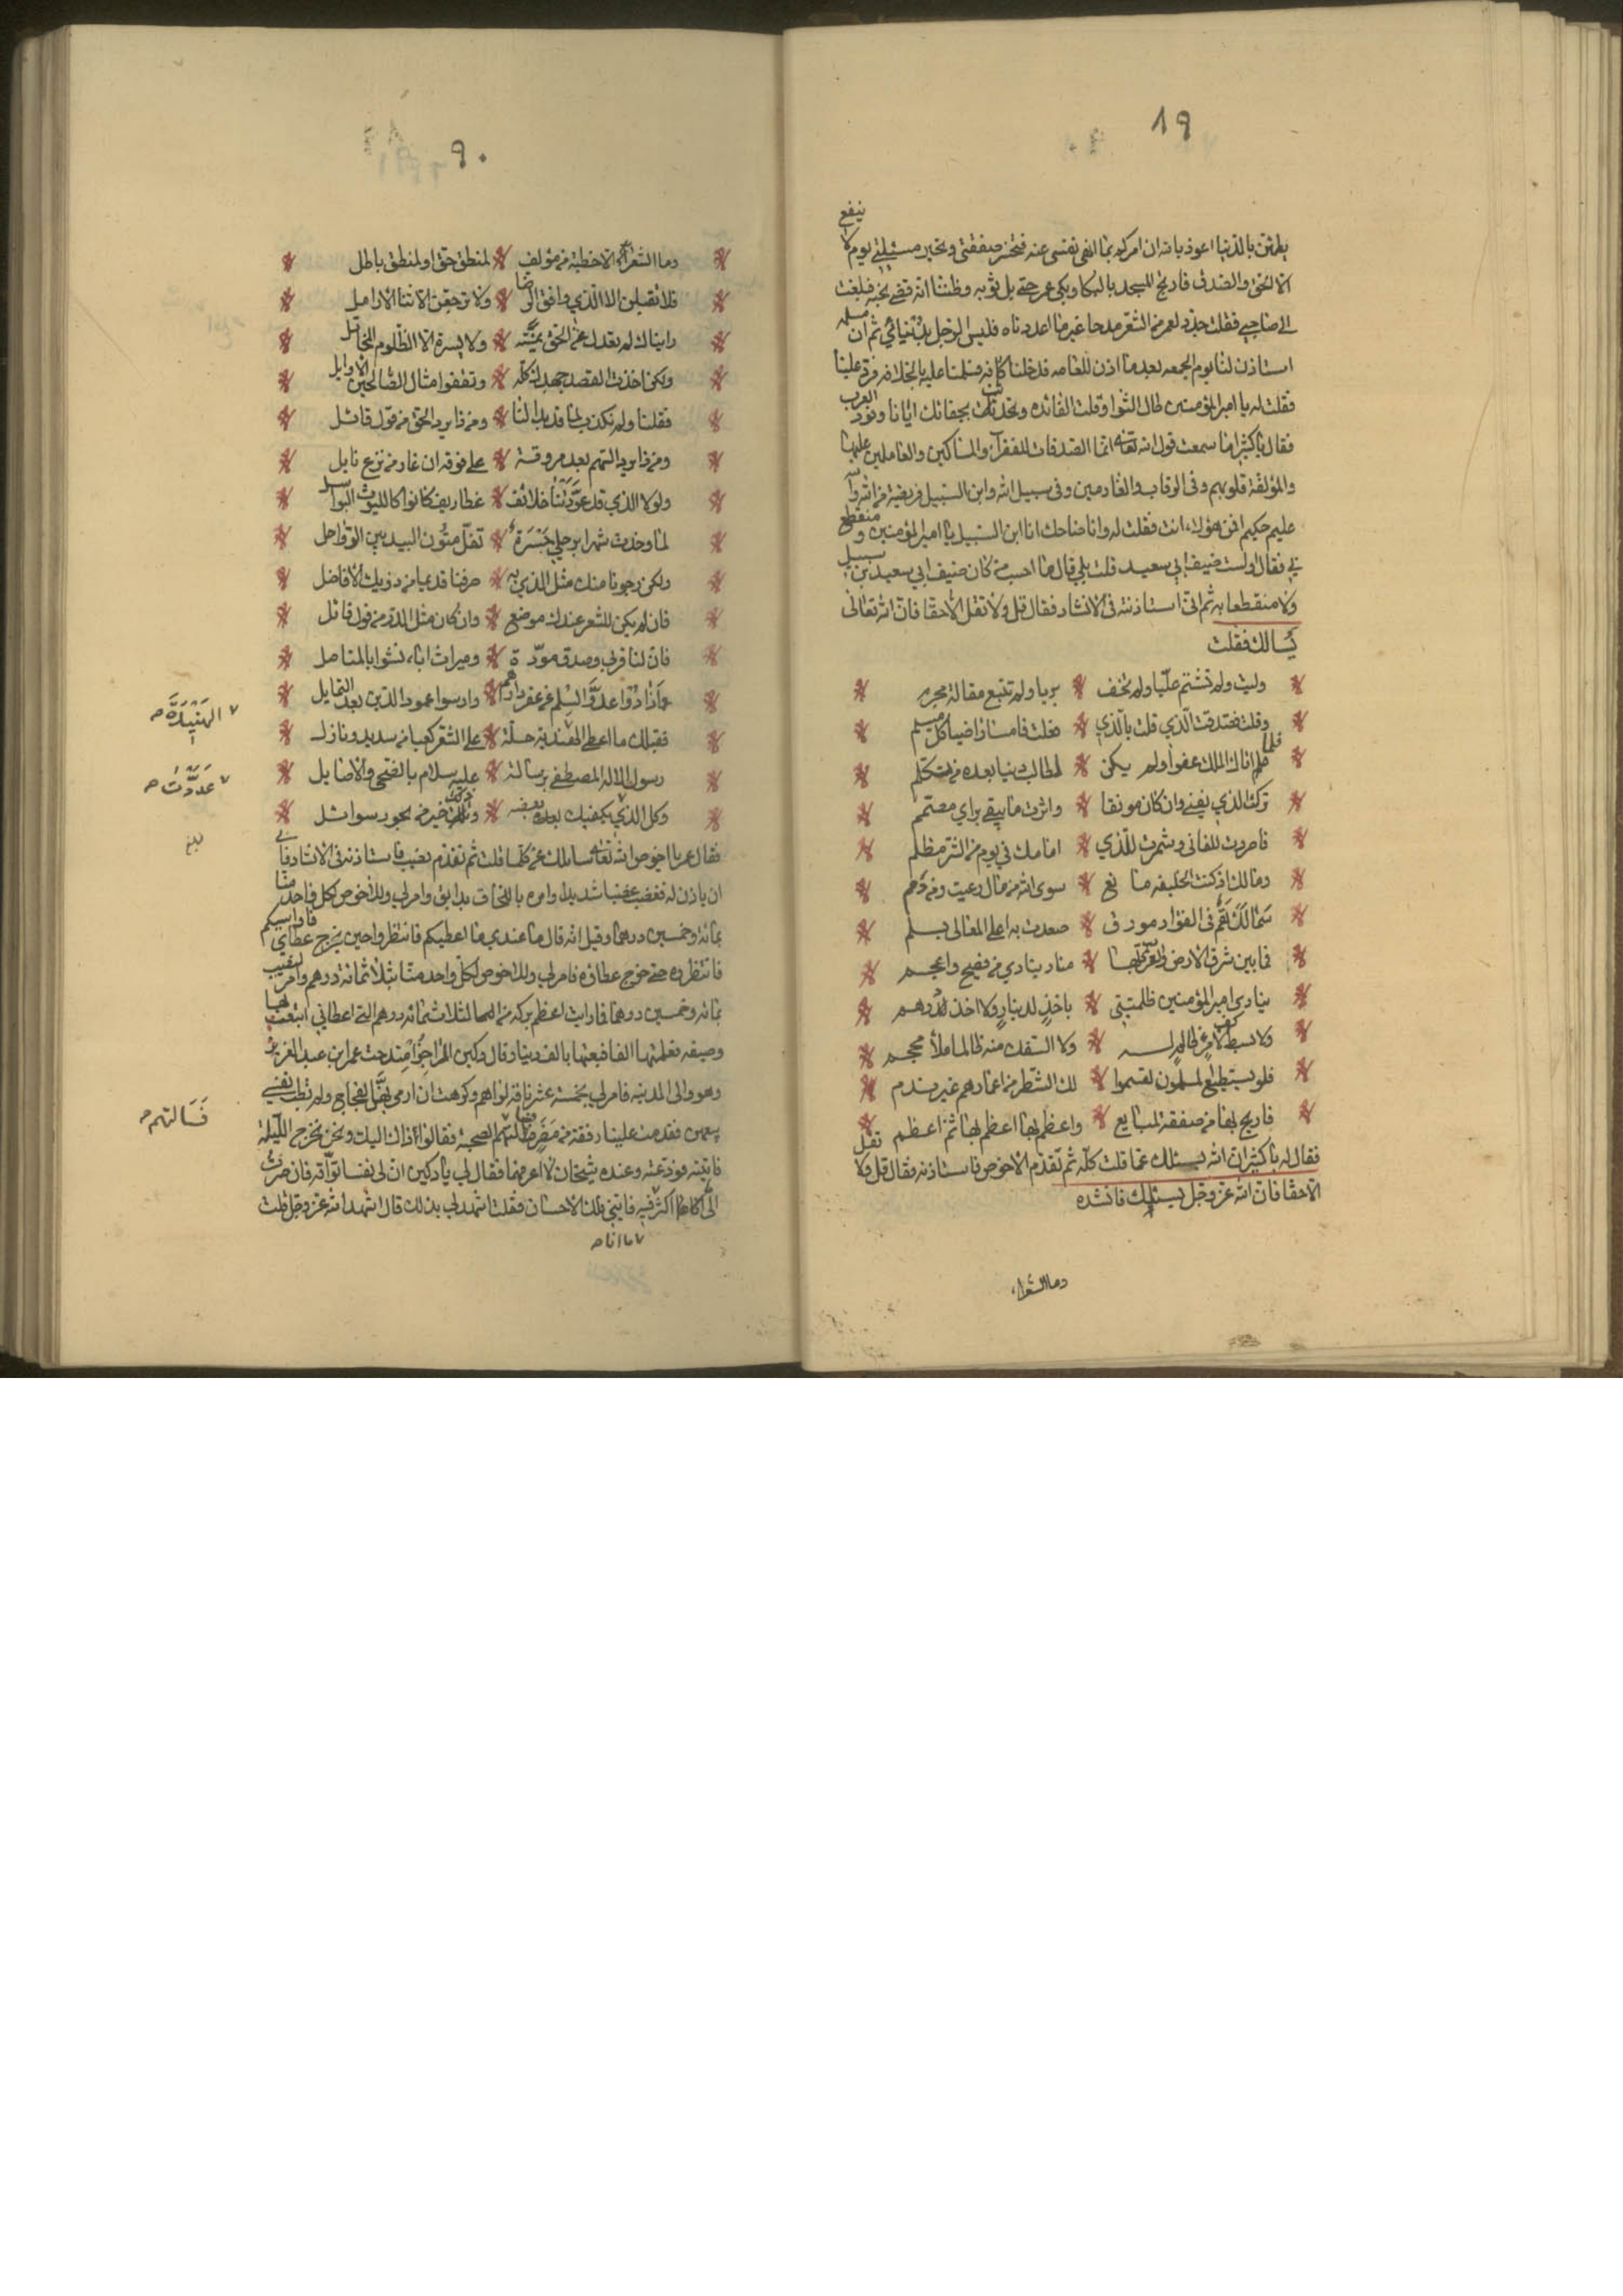 ٨٩
ينفع
يطمئن بالدنيا اعوذ بالله ان امركم بما انهى نفسى عنه فتخسر صفقتى وتخيب مسئلتى يوم لا
الا الحق والصدق فارتج المسجد بالبكا وبكى عمر حتى بل ثوبه وظننا انه قضى نحبه فبلغت
الى صاحبي فقلت جدد لعمر من الشعر مدحا غير ما اعددناه فليس الرجل ثم ان مسلمه
استاذن لنا يوم الجمعه بعدما اذن للعامه فدخلنا فسلمنا عليه بالخلافه فرد علينا
فقلت له يا امير المؤمنين طال الثوا وقلت الفائده وتحدثت بجفائك ايانا وفود العرب
فقال يا كثير اما سمعت قول الله تعالى انما الصدقات للفقرآ والمساكين والعاملين عليها
والمؤلفة قلوبهم وفى الرقاب والغارمين وفى سبيل الله وابن السبيل فريضة من الله والله
عليم حكيم افمن هؤلاء انت فقلت له وانا ضاحك انا ابن السبيل يا امير المؤمنين و منقطع
بي فقال اولست ضيف ابى سعيد قلت بلى قال ما احسب من كان ضيف ابي سعيد ابن سبيل
ولا منقطعا به ثم انى استاذنته فى الانشاد فقال قل ولا تقل الا حقا فان الله تعالى
يسالك فقلت
وليت ولم تشتم عليا ولم تخف * بريا ولم تتبع مقالة مجرم
وقلت فصدقت الذي قلت بالذي * فعلت فامسا راضيا كل مسلم
فلما اتاك الملك عفوا ولم يكن * لطالب دنيا بعده من تكلم
تركت الذي يفنى وان كان مونقا * واثرت ما يبقى براي مصمم
فاضررت للفانى وشمرت للذي * امامك في يوم من الشر مظلم
ومالك اذ كنت الخليفه مانع * سوى الله من مال رعيت ومن دم
سما لك هم فى الفؤاد مورق * صعدت به اعلى المعالى بسلم
فما بين شرق الارض والغرب كلها * مناد ينادي من فصيح واعجم
ينادى امير المؤمنين ظلمتني * باخذ لدينار ولا اخذ لدرهم
ولا بسط كف لامرء ظالم له * ولا السفك منه ظالما ملأ محجم
فلو يستطيع المسلمون لقسموا * لك الشطر من اعمارهم غير ندم
فاربح بها من صفقة لمبايع * واعظم بها اعظم بها ثم اعظم
فقال له يا كثير ان الله يسئلك عما قلت كله ثم تقدم الاخوص فاستاذنه فقال قل ولا تقل
الا حقا فان الله عز وجل يسئلك فانشده
وما الشعراء
٩٠
وما الشعر الا خطبة من مؤلف * لمنطق حق او لمنطق باطل
فلا تقبلن الا الذي وافق الرضا * ولا ترجعن الانسا الارامل
رايناك لم تعدل عن الحق يمنة * ولا يسرة الا الظلوم المخاتل
ولكن اخذت القصد جهدك كله * وتقفوا مثال الصالحين الاوايل
فقلنا ولم نكذب بما قد بدا لنا * ومن ذا يرد الحق من قول قائل
ومن ذا يرد السهم بعد مروقه * على فوقه ان غار من نزع نابل
ولولا الذي قد عودتنا خلائف * غطاريف كانوا كالليوث البواسل
لما وخدت شهرا برحلي جسرة * تفل متون البيد بين الرواحل
ولكن رجونا منك مثل الذي به * صرفنا قديما من ذويك الافاضل
فان لم يكن للشعر عندك موضع * وان كان مثل الدر من قول قائل
فان لنا قربى وصدق مودة * وميراث اباء نشوا بالمناصل
فذادوا عدو السلم عن عقر دارهم * وارسوا عمود الدين بعد التمايل
فقبلك ما اعطى الهنيدة جلة * على الشعر كعبا من سديد ونازل
رسول الاله المصطفى برسالة * عليه سلام بالضحى والاصايل
وكل الذي يكفيك بعضه * خير من بحور سوائل
فقال عمر يا اخوص الله تعالى سايلك عن كلما قلت ثم تقدم نصيب فاستاذنه فى الانشاد فابى
ان ياذن له فغضب غضبا شديدا وامره باللحاق بدابق وامر لي وللاخوص لكل واحد منا
بمائة وخمسين درهما وقيل انه قال ما عندي ما اعطيكم فانتظروا حين يخرج عطاي فاواسيكم
فانتظروه حتى خرج عطاؤه فامر لي وللاخوص لكل واحد منا بثلاثمائة درهم وامر لنصيب
بمائه وخمسين درهما فما رايت اعظم بركه من الثلاث مائه درهم التى اعطانى ابتعت بها
وصيفه فعلمتها الغنا فبعتها بالف دينار وقال دكين الراجز امتدحت عمر ابن عبد العزيز
وهو والى المدينه فامر لي بخمسة عشر ناقة فكرهت ان ارمى بهن الفجاج ولم تطب نفسي
ببيعهن فقدمت علينا رفقة من مضر فسالتهم الصحبة فقالوا ذاك اليك ونحن نخرج الليلة
فاتيته فودعته وعنده شيخان لا اعرفهما فقال لي يا دكين ان لى نفسا تواقه فان صرت
الى اكثر فاتنى ولك الاحسان فقلت اشهد لي بذلك قال اشهد الله عز وجل قلت
مما انا
الهنيدة صح
عددت صح
بلغ
فسالتهم صح